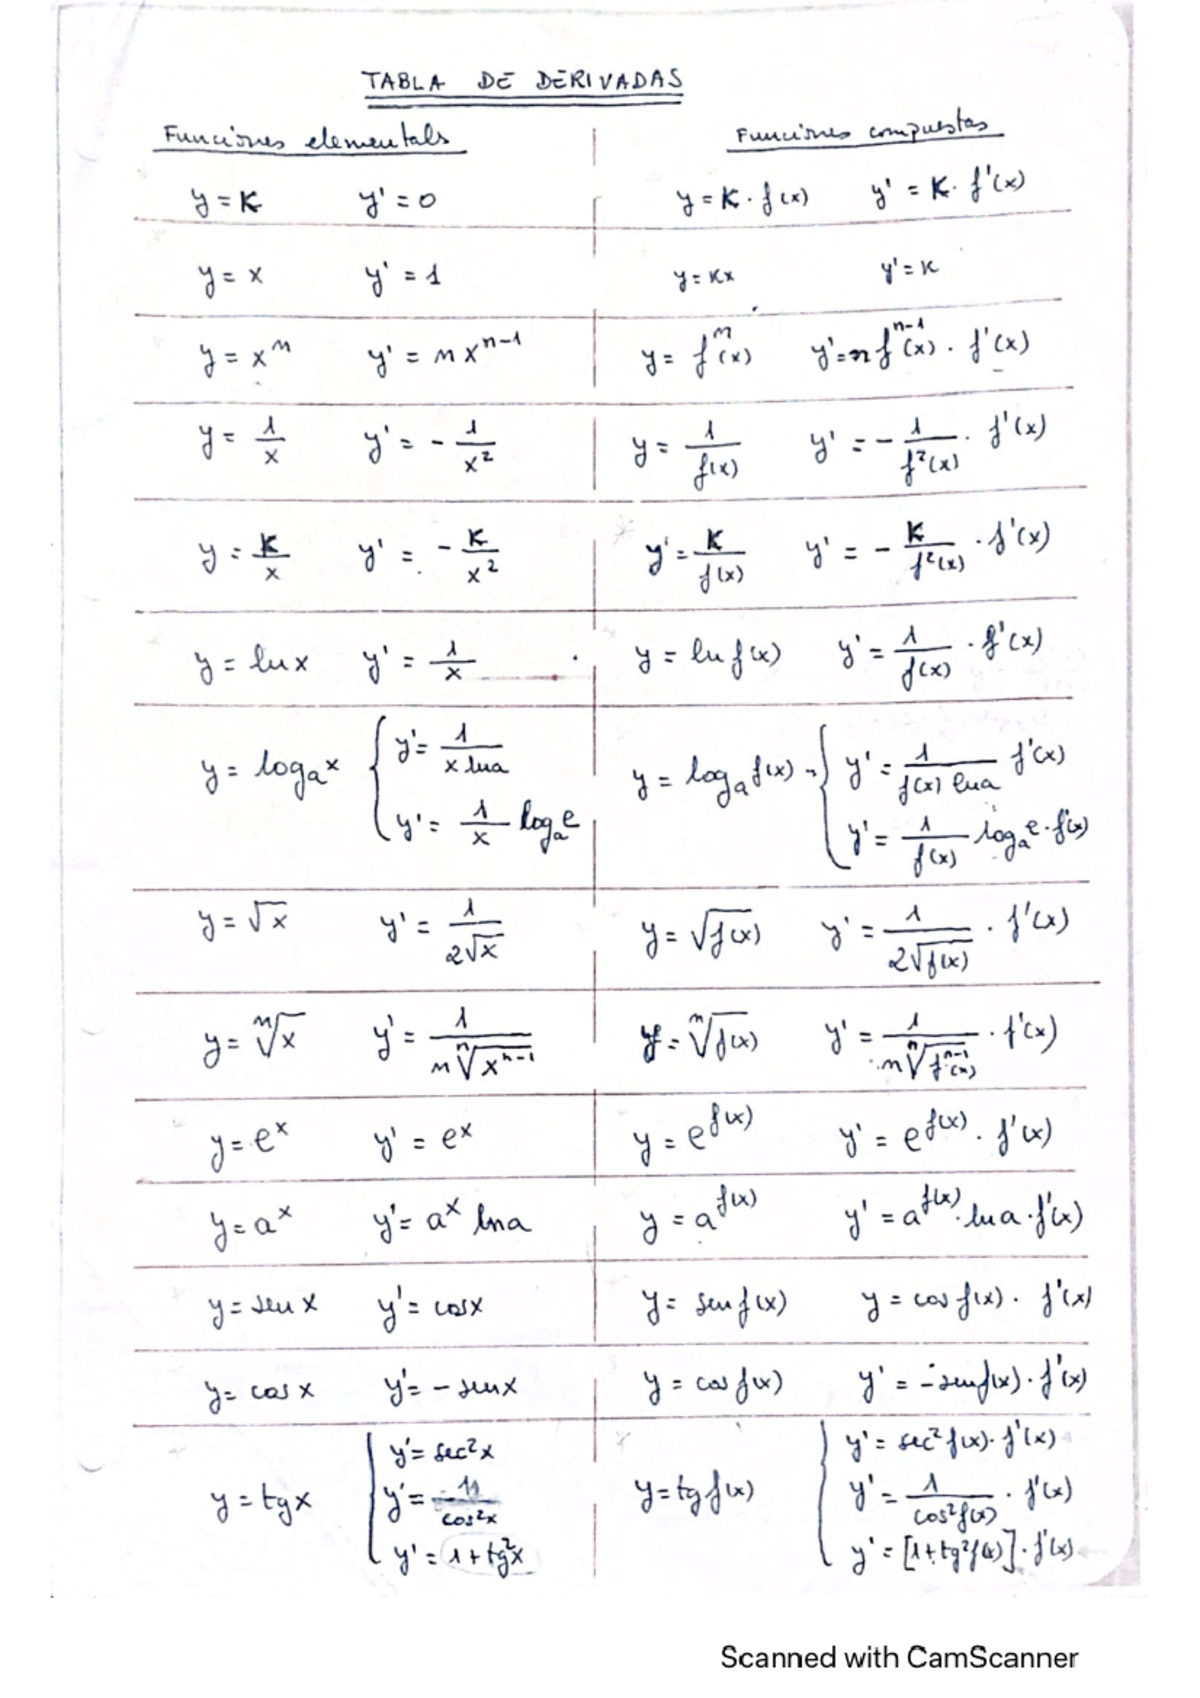 TABLA DE DERIVADAS
Funciones elementals Funciones compuestas
y = K y' = 0 y = K · f(x) y' = K · f'(x)
y = x y' = 1 y = Kx y' = K
y = xⁿ y' = n xⁿ⁻¹ y = fⁿ(x) y' = n fⁿ⁻¹(x) · f'(x)
y = 1/x y' = - 1/x² y = 1/f(x) y' = - 1/f²(x) · f'(x)
y = K/x y' = - K/x² y' = K/f(x) y' = - K/f²(x) · f'(x)
y = ln x y' = 1/x y = ln f(x) y' = 1/f(x) · f'(x)
y = logₐ x { y' = 1/(x ln a) y = logₐ f(x) → { y' = 1/(f(x) ln a) f'(x)
y' = 1/x logₐ e y' = 1/f(x) logₐ e · f'(x)
y = √x y' = 1/(2√x) y = √f(x) y' = 1/(2√f(x)) · f'(x)
y = ⁿ√x y' = 1/(n ⁿ√xⁿ⁻¹) y = ⁿ√f(x) y' = 1/(n ⁿ√fⁿ⁻¹(x)) · f'(x)
y = eˣ y' = eˣ y = e^f(x) y' = e^f(x) · f'(x)
y = aˣ y' = aˣ ln a y = a^f(x) y' = a^f(x) · ln a · f'(x)
y = sen x y' = cos x y = sen f(x) y = cos f(x) · f'(x)
y = cos x y' = - sen x y = cos f(x) y' = - sen f(x) · f'(x)
y = tg x { y' = sec² x y = tg f(x) { y' = sec² f(x) · f'(x)
y' = 1/cos² x y' = 1/cos² f(x) · f'(x)
y' = 1 + tg² x y' = [1 + tg² f(x)] · f'(x)
Scanned with CamScanner